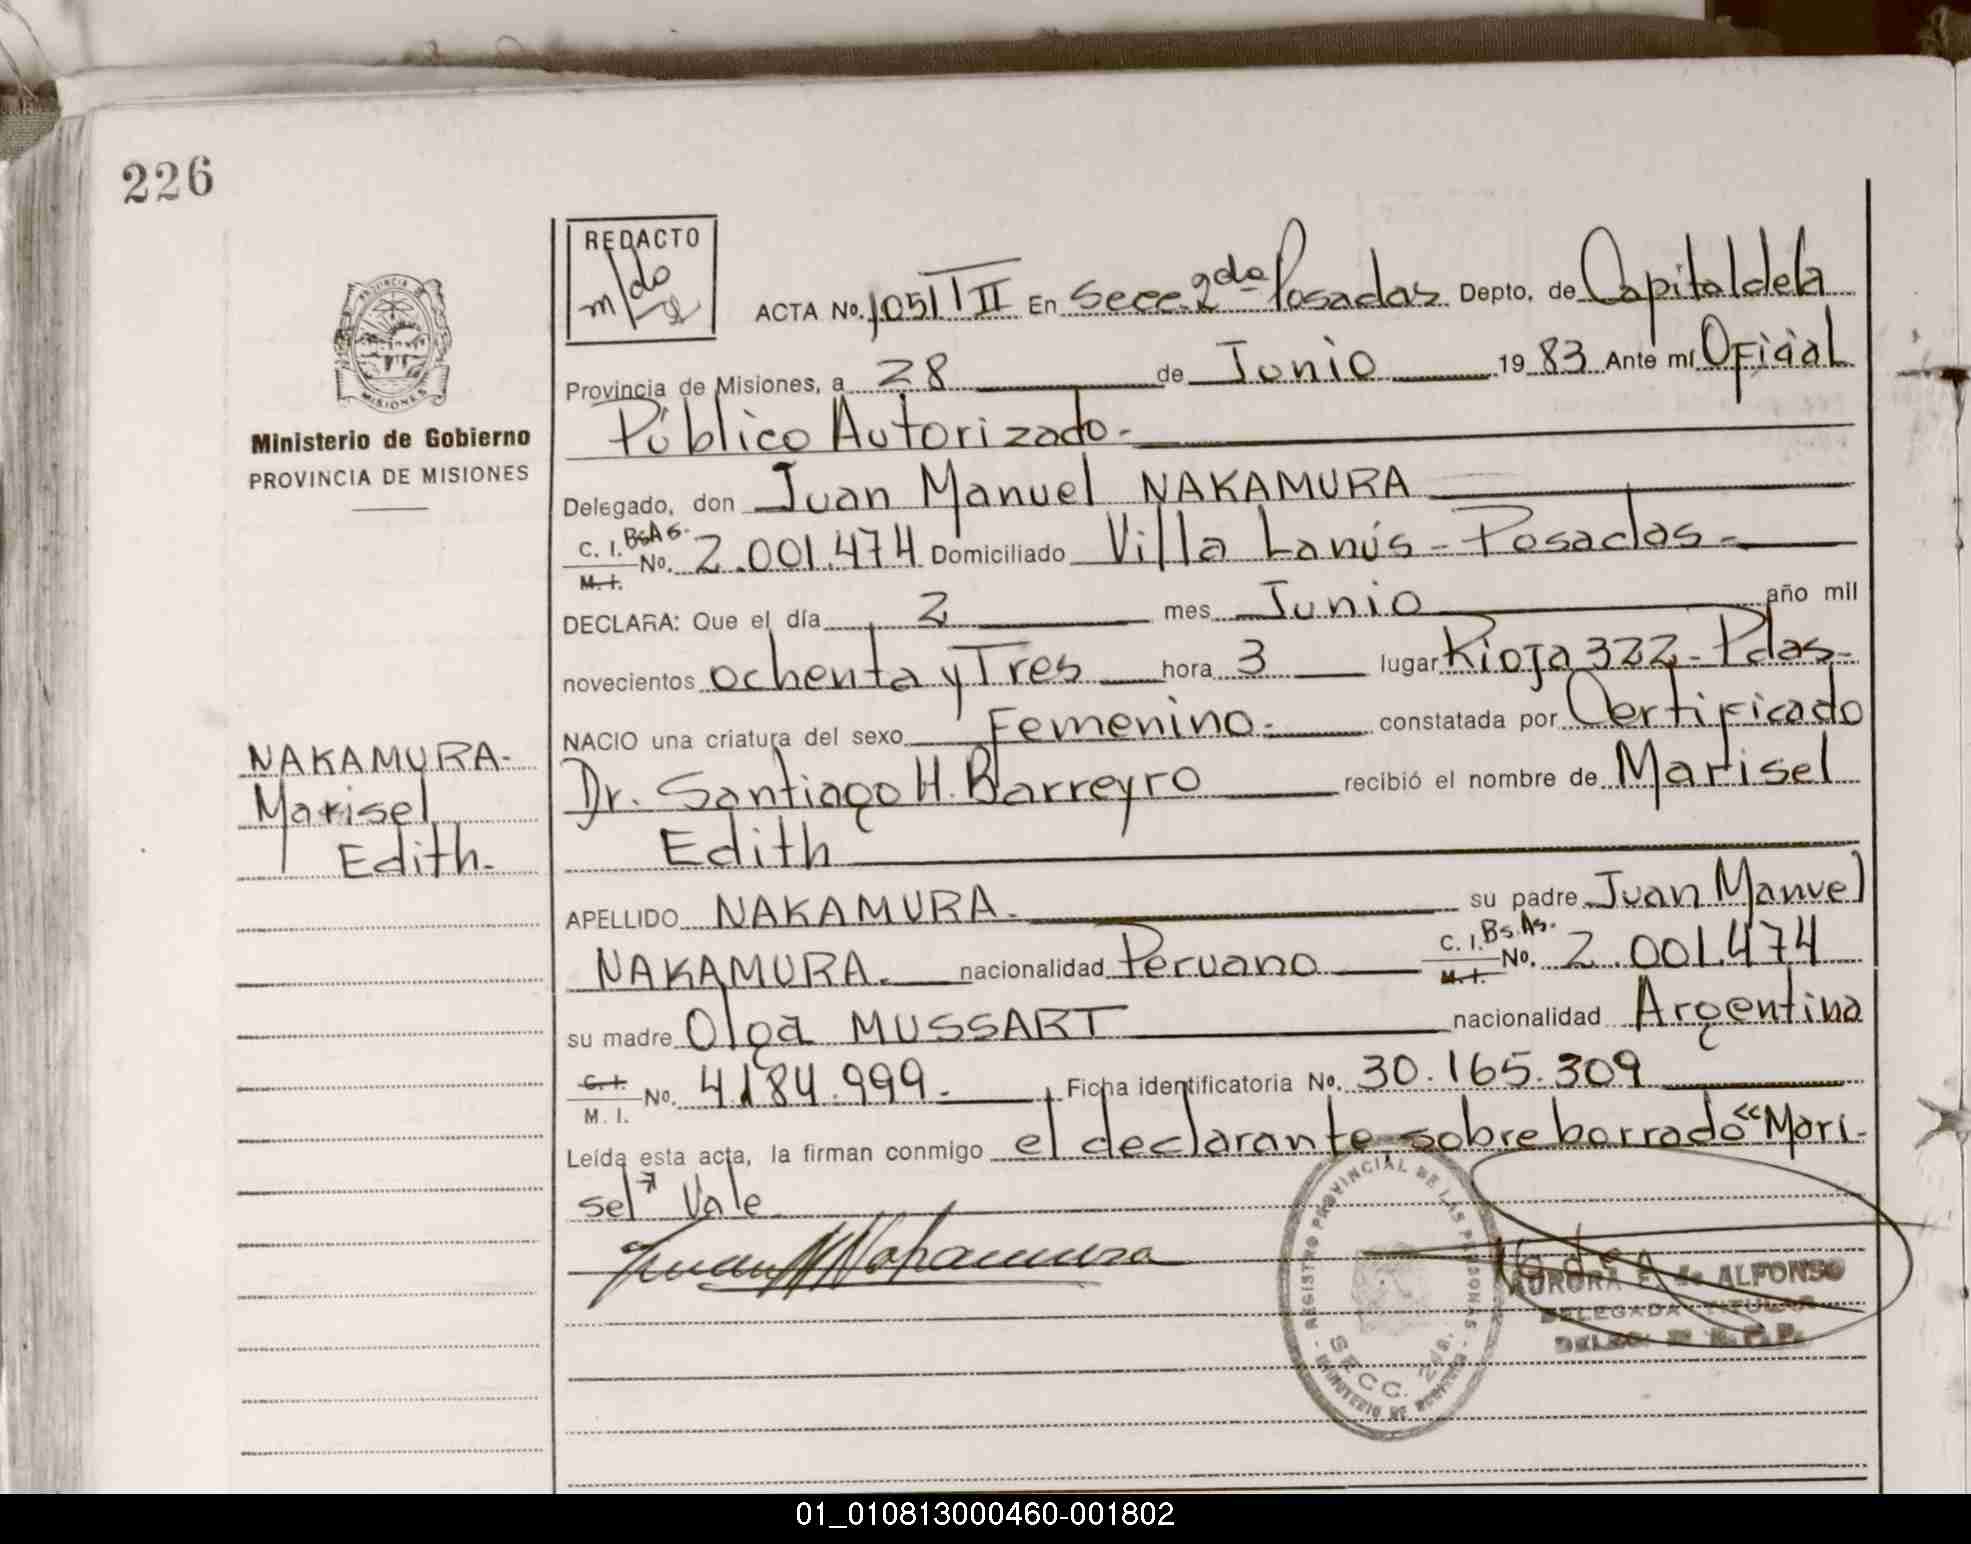 226
REDACTO
PROVINCIA
MISIONES
Ministerio de Gobierno
PROVINCIA DE MISIONES
ACTA No. 1051 TII En Secc. 2da Posadas Depto. de Capital de la
Provincia de Misiones, a 28 de Junio 1983 Ante mí Oficial
Público Autorizado.-
Delegado, don Juan Manuel NAKAMURA
C. I. Bs As.
M. I. No. 2.001.474 Domiciliado Villa Lanús - Posadas -
DECLARA: Que el día 2 mes Junio año mil
novecientos ochenta y Tres hora 3 lugar Rioja 322 - Pdas -
NACIO una criatura del sexo Femenino.- constatada por Certificado
Dr. Santiago H. Barreyro recibió el nombre de Marisel
Edith
NAKAMURA-
Marisel
Edith-
APELLIDO NAKAMURA.- su padre Juan Manuel
NAKAMURA.- nacionalidad Peruano C. I. Bs. As.
M. I. No. 2.001.474
su madre Olga MUSSART nacionalidad Argentina
C. I.
M. I. No. 4.184.999.- Ficha identificatoria No. 30.165.309
Leída esta acta, la firman conmigo el declarante, sobre borrado "Mari-
sel" Vale
Juan M Nakamura
REGISTRO PROVINCIAL DE LAS PERSONAS
SECC. 2da.
MINISTERIO DE GOBIERNO
AURORA E. de ALFONSO
DELEGADA TITULAR
01_010813000460-001802